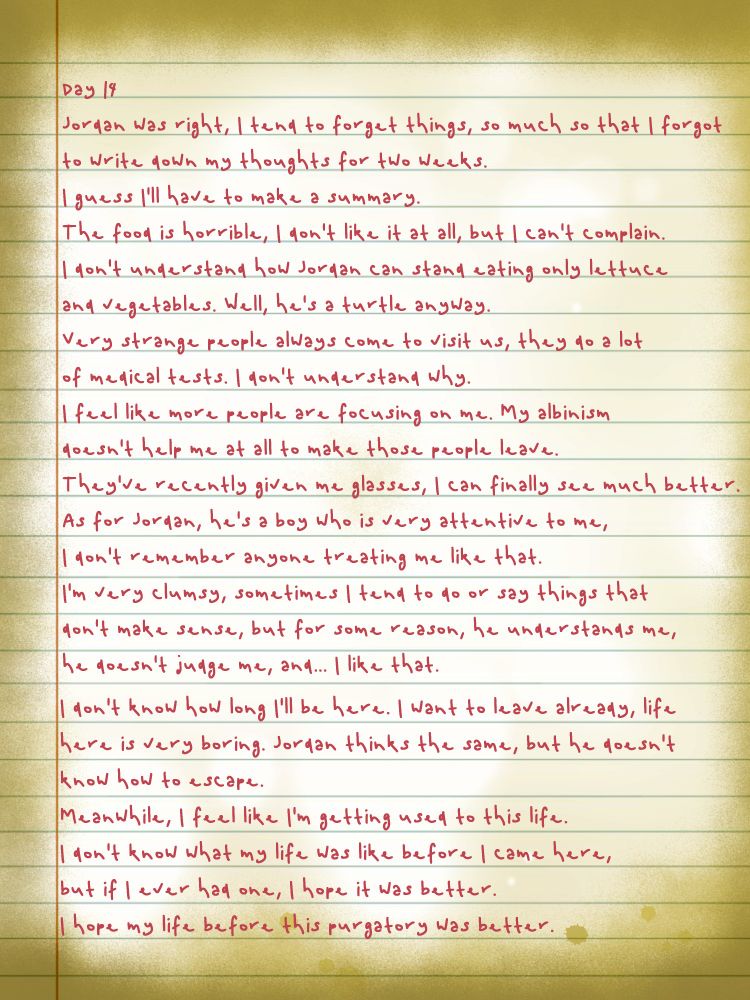 Day 19
Jordan was right, I tend to forget things, so much so that I forgot
to write down my thoughts for two weeks.
I guess I'll have to make a summary.
The food is horrible, I don't like it at all, but I can't complain.
I don't understand how Jordan can stand eating only lettuce
and vegetables. Well, he's a turtle anyway.
Very strange people always come to visit us, they do a lot
of medical tests. I don't understand why.
I feel like more people are focusing on me. My albinism
doesn't help me at all to make those people leave.
They've recently given me glasses, I can finally see much better.
As for Jordan, he's a boy who is very attentive to me,
I don't remember anyone treating me like that.
I'm very clumsy, sometimes I tend to do or say things that
don't make sense, but for some reason, he understands me,
he doesn't judge me, and... I like that.
I don't know how long I'll be here. I want to leave already, life
here is very boring. Jordan thinks the same, but he doesn't
know how to escape.
Meanwhile, I feel like I'm getting used to this life.
I don't know what my life was like before I came here,
but if I ever had one, I hope it was better.
I hope my life before this purgatory was better.